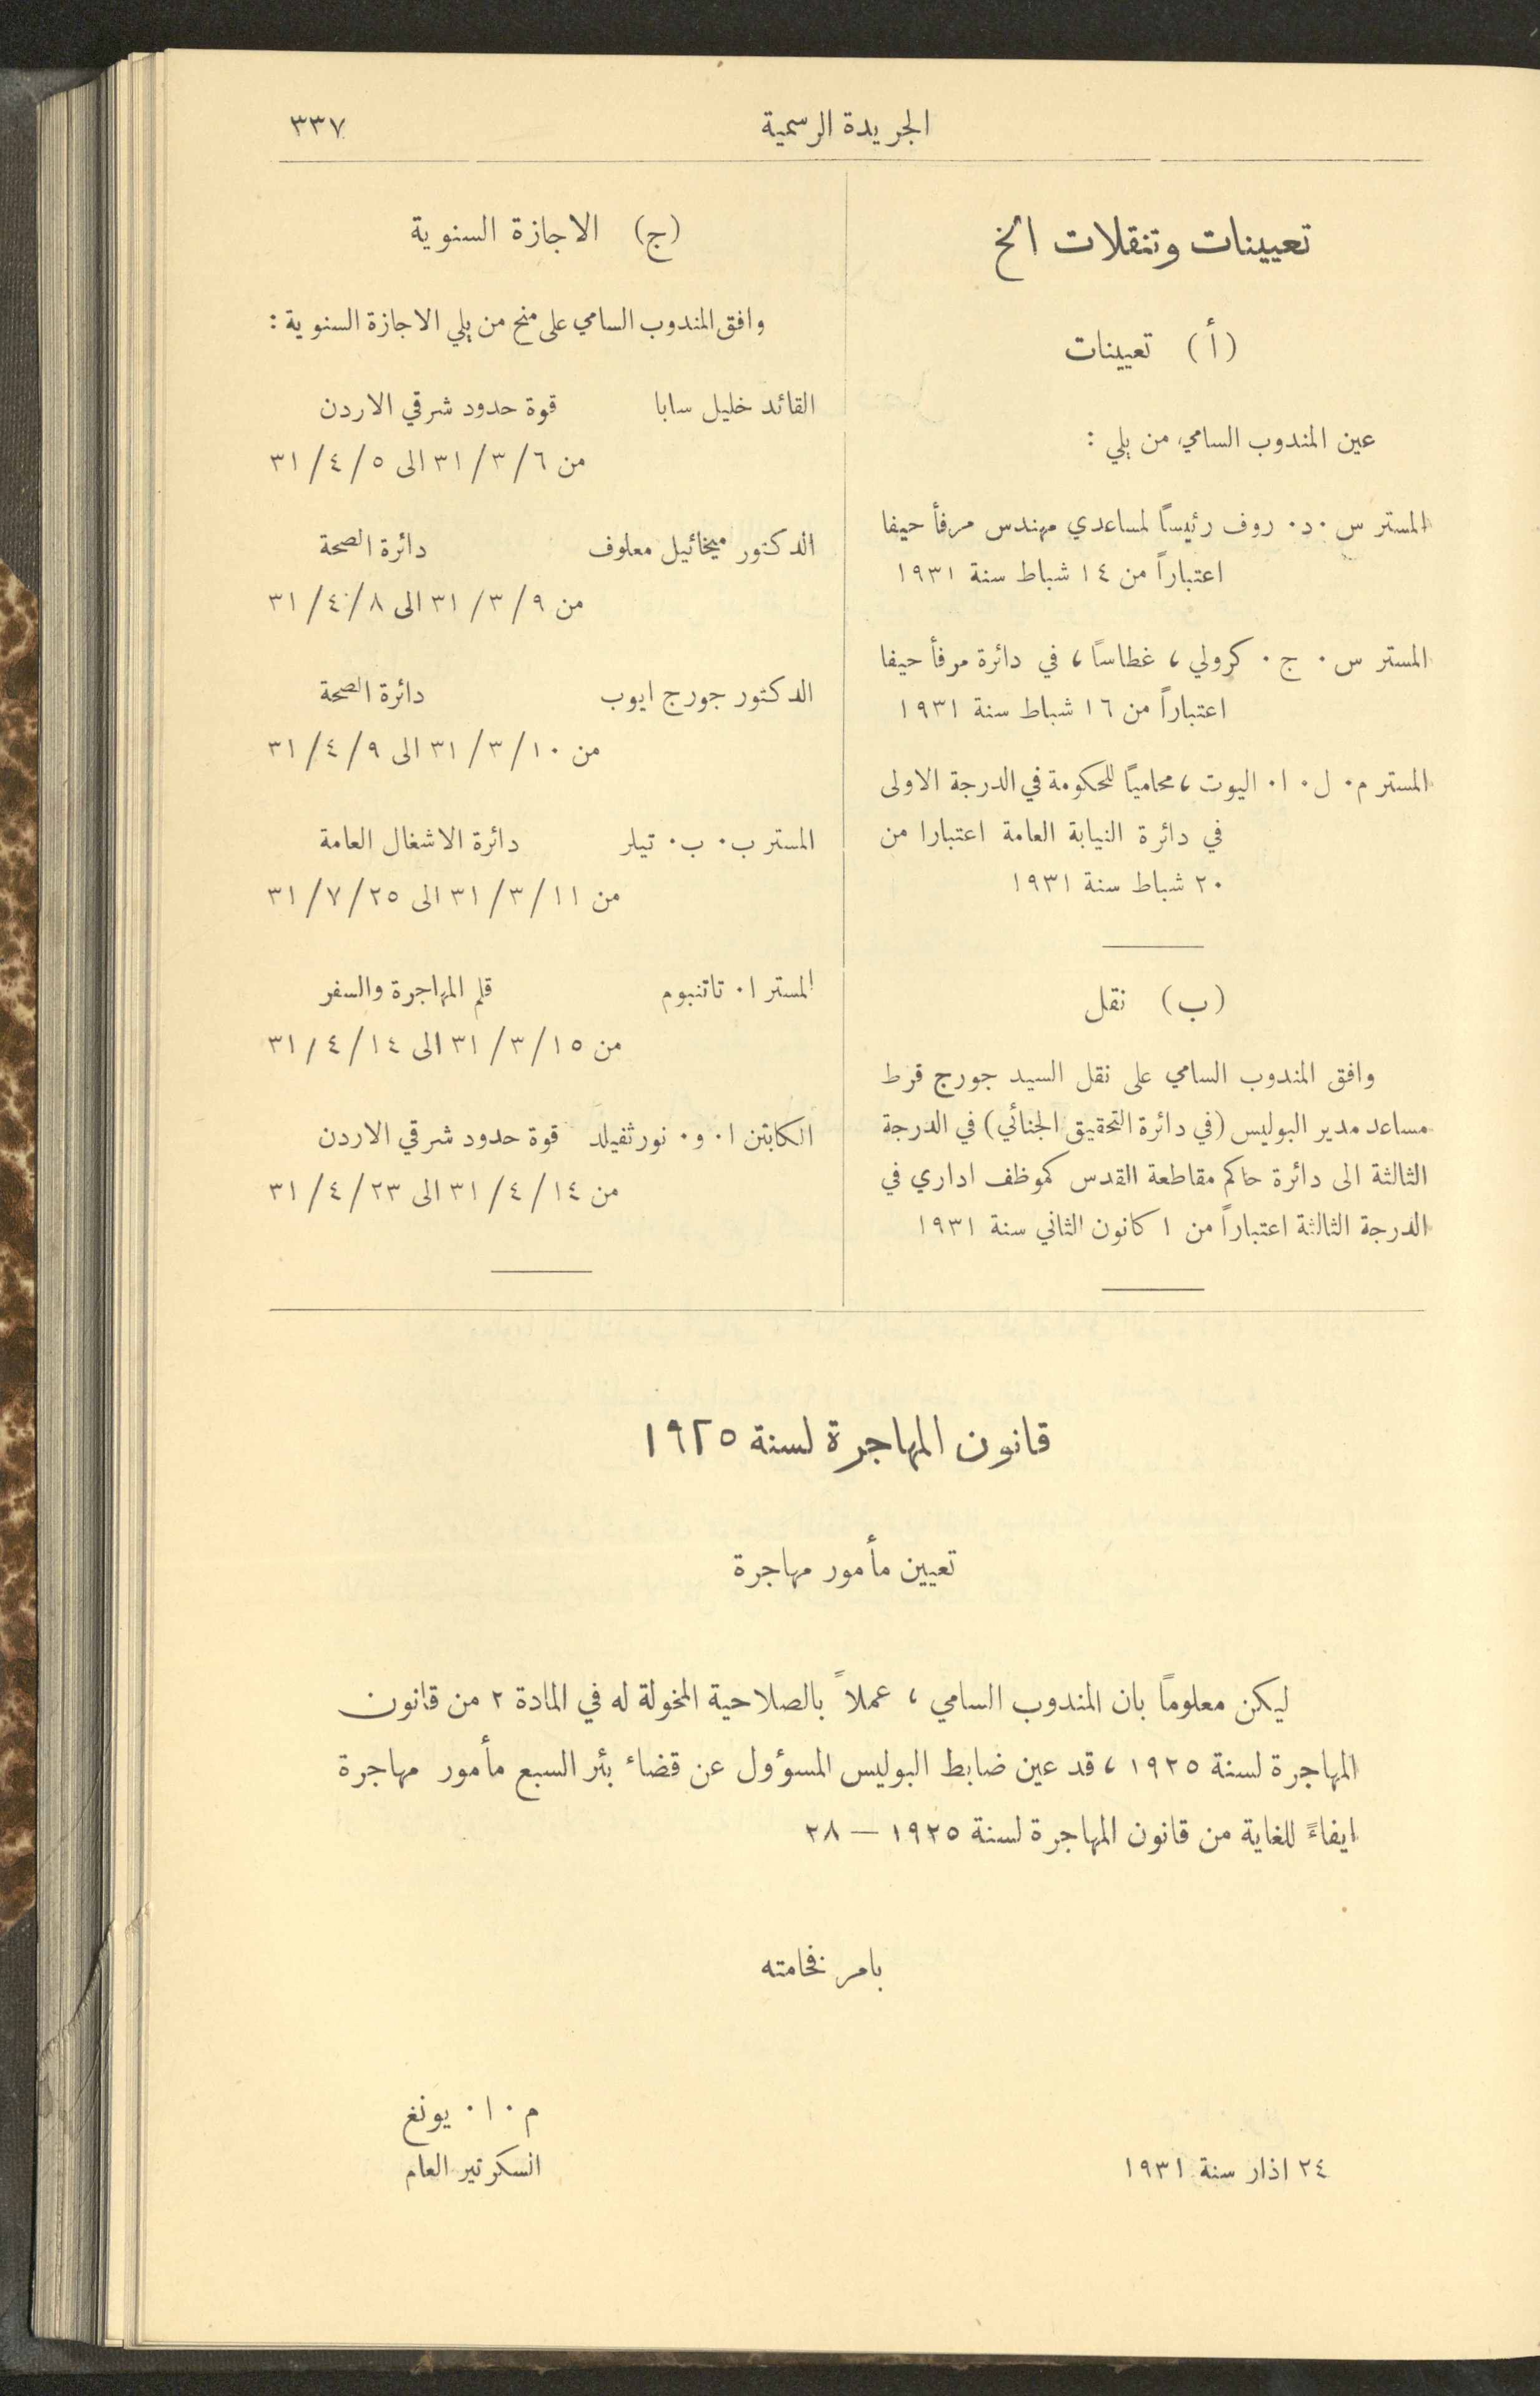 الجريدة الرسمية
٣٣٧
تعيينات وتنقلات الخ
(أ) تعيينات
عين المندوب السامي من يلي :
المستر س. د. روف رئيساً لمساعدي مهندس مرفأ حيفا
اعتباراً من ١٤ شباط سنة ١٩٣١
المستر س. ج. كرولي، غطاساً، في دائرة مرفأ حيفا
اعتباراً من ١٦ شباط سنة ١٩٣١
المستر م. ل. ا. اليوت، محامياً للحكومة في الدرجة الاولى
في دائرة النيابة العامة اعتبارا من
٢٠ شباط سنة ١٩٣١
(ب) نقل
وافق المندوب السامي على نقل السيد جورج قرط
مساعد مدير البوليس (في دائرة التحقيق الجنائي) في الدرجة
الثالثة الى دائرة حاكم مقاطعة القدس كموظف اداري في
الدرجة الثالثة اعتباراً من ١ كانون الثاني سنة ١٩٣١
(ج) الاجازة السنوية
وافق المندوب السامي على منح من يلي الاجازة السنوية :
القائد خليل سابا قوة حدود شرقي الاردن
من ٦/٣/٣١ الى ٥/٤/٣١
الدكتور ميخائيل معلوف دائرة الصحة
من ٩/٣/٣١ الى ٨/٤/٣١
الدكتور جورج ايوب دائرة الصحة
من ١٠/٣/٣١ الى ٩/٤/٣١
المستر ب. ب. تيلر دائرة الاشغال العامة
من ١١/٣/٣١ الى ٢٥/٧/٣١
المستر ا. تاتنبوم قلم المهاجرة والسفر
من ١٥/٣/٣١ الى ١٤/٤/٣١
الكابتن ا. و. نورثفيلد قوة حدود شرقي الاردن
من ١٤/٤/٣١ الى ٢٣/٤/٣١
قانون المهاجرة لسنة ١٩٢٥
تعيين مأمور مهاجرة
ليكن معلوماً بان المندوب السامي، عملاً بالصلاحية المخولة له في المادة ٢ من قانون
المهاجرة لسنة ١٩٢٥، قد عين ضابط البوليس المسؤول عن قضاء بئر السبع مأمور مهاجرة
ايفاءً للغاية من قانون المهاجرة لسنة ١٩٢٥ — ٢٨
بامر فخامته
م. ا. يونغ
السكرتير العام
٢٤ اذار سنة ١٩٣١